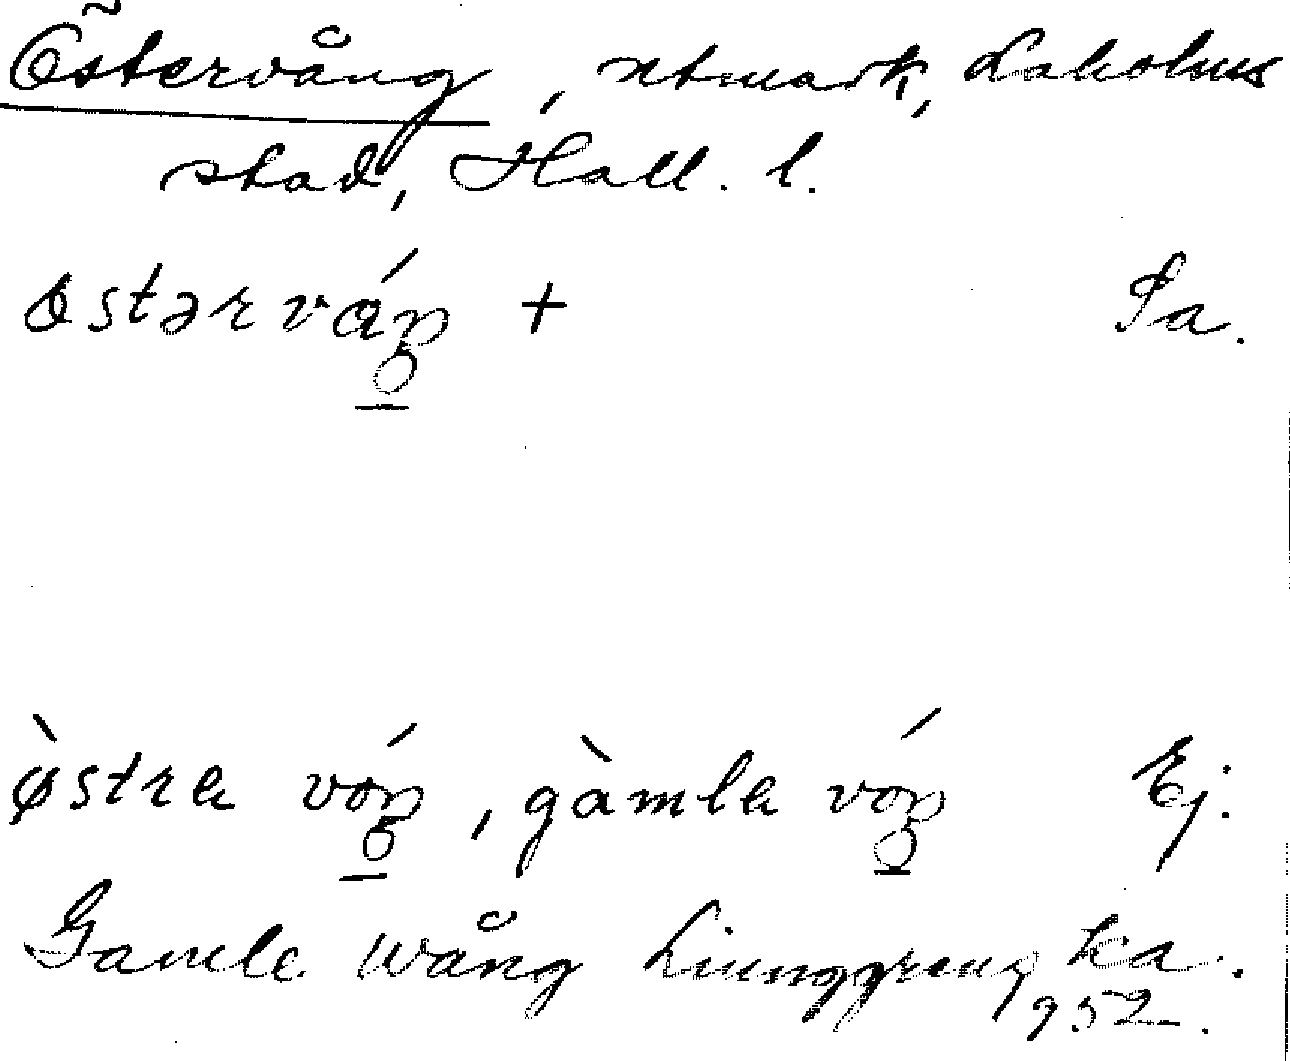 Östervång, utmark, Laholms
stad, Hall. l.
østərváŋ + Sa.
østra vóŋ, gàmla vóŋ Ej.
Gamle Wång Liunggrens ka.
952.